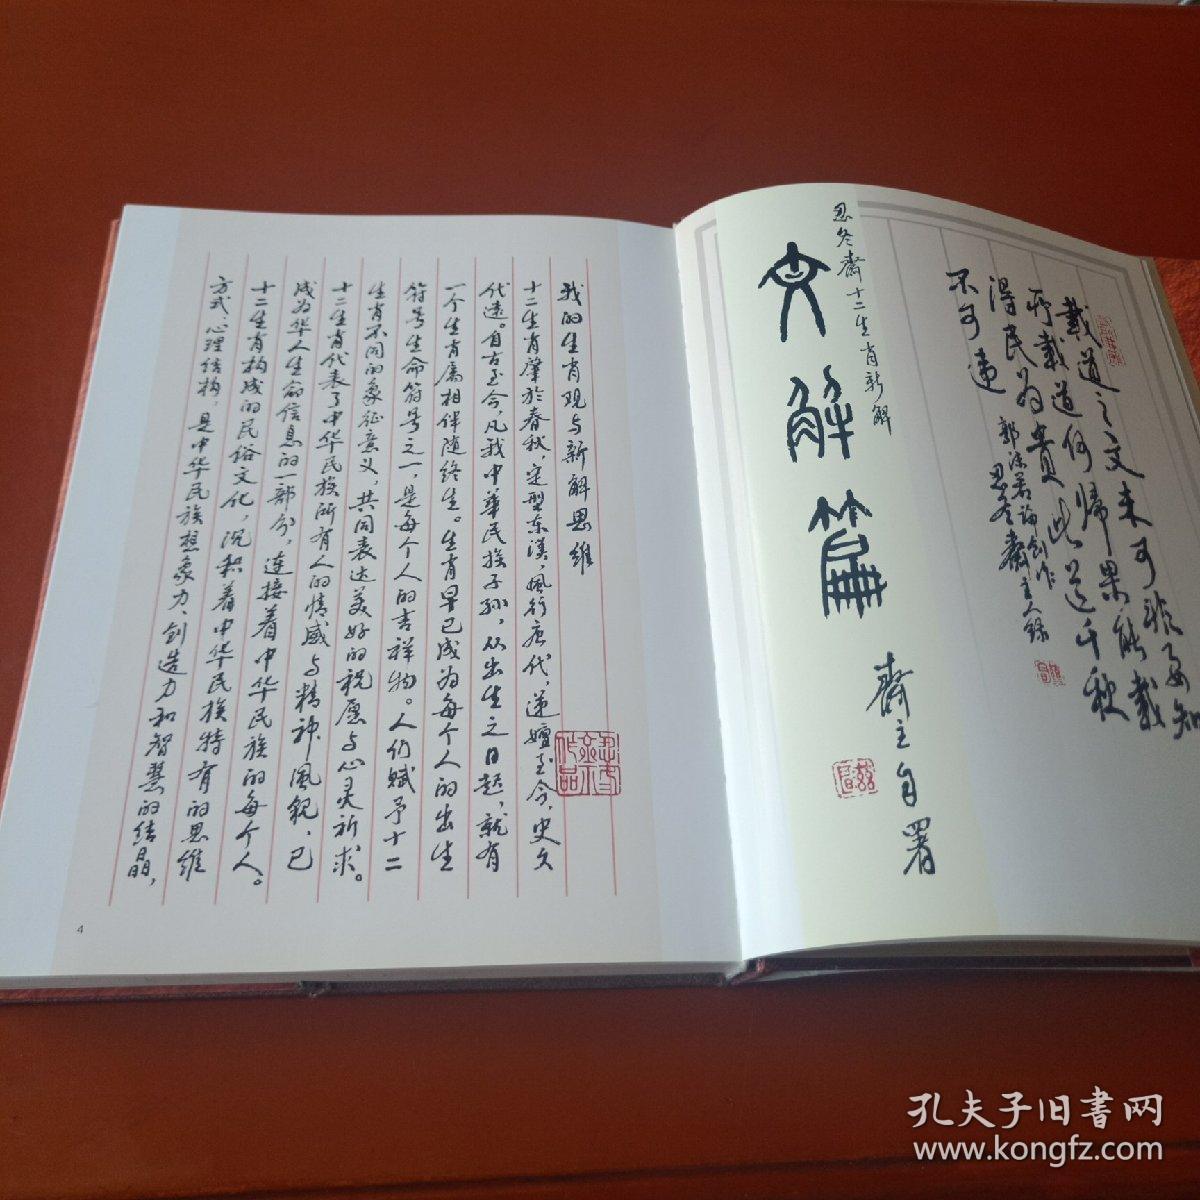 载道之文未可非要知
所载道何归果能载
得民为贵此道千秋
不可违
郭沫若论创作
忍冬斋主人录
忍冬斋十二生肖新解
文解篇
斋主自署
我的生肖观与新解思维
十二生肖肇於春秋，定型东汉，风行唐代，递嬗至今，史久
代远。自古至今，凡我中華民族子孙，从出生之日起，就有
一个生肖属相伴随终生。生肖早已成为每个人的出生
符号生命符号之一，是每个人的吉祥物。人们赋予十二
生肖不同的象征意义，共同表达美好的祝愿与心灵祈求。
十二生肖代表了中华民族所有人的情感与精神风貌，已
成为华人生命信息的一部分，连接着中华民族的每个人。
十二生肖构成的民俗文化，沉积着中华民族特有的思维
方式、心理结构，是中华民族想象力、创造力和智慧的结晶，
4
孔夫子旧书网
www.kongfz.com